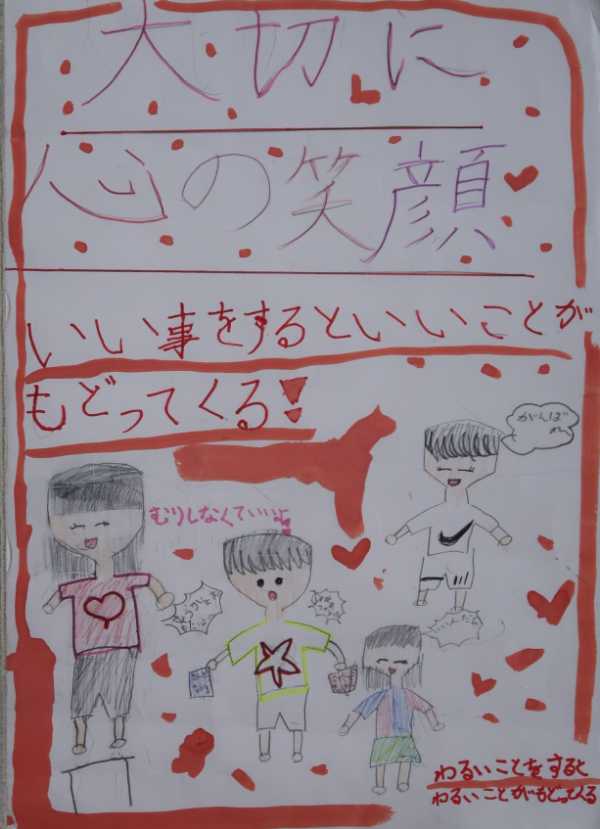 大切に
心の笑顔
いい事をするといいことが
もどってくる!
がんば
れ
むりしなくていいよ
わるいことをすると
わるいことがもどってくる